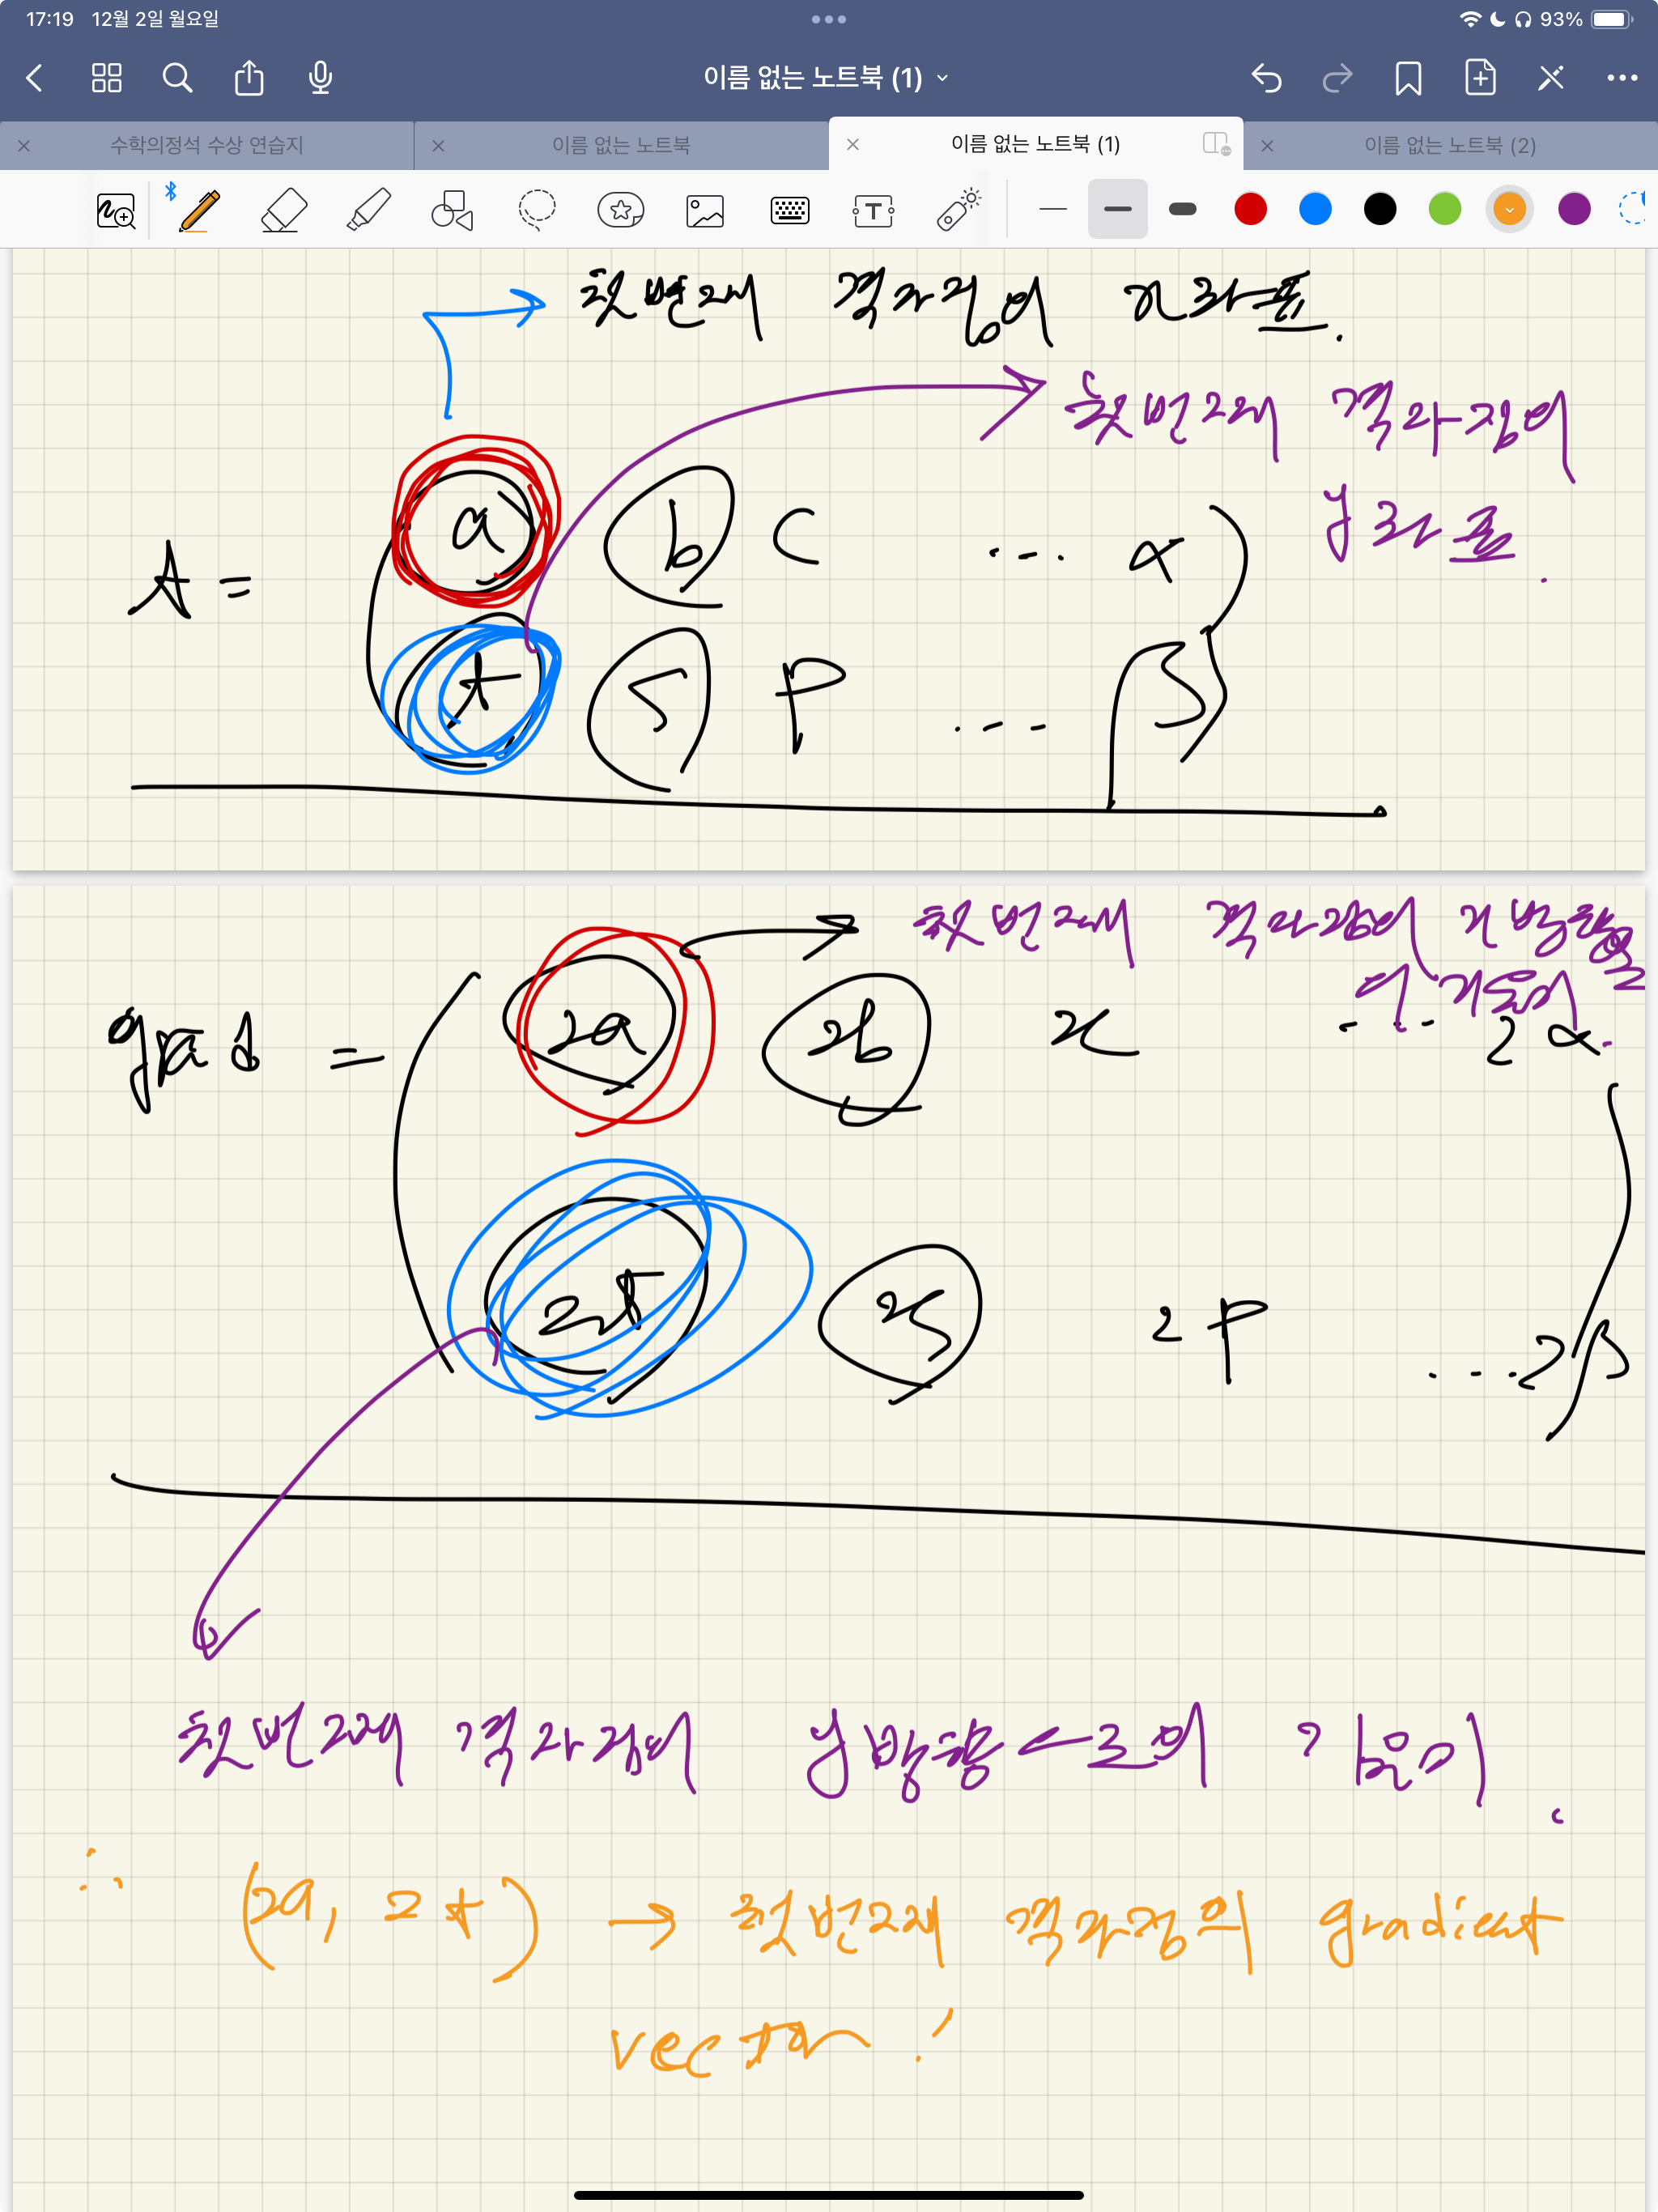 17:19 12월 2일 월요일 93%
이름 없는 노트북 (1)
수학의정석 수상 연습지 이름 없는 노트북 이름 없는 노트북 (1) 이름 없는 노트북 (2)
T
첫번째 격자점의 x좌표.
첫번째 격자점의
y좌표.
A = ( a b c ... α )
( t s p ... β )
첫번째 격자점에 x방향으로
의 기울기.
grad = ( 2a 2b 2c ... 2α
2t 2s 2p ... 2β )
첫번째 격자점에 y방향으로의 기울기.
∴ (2a, 2t) → 첫번째 격자점의 gradient
vector!